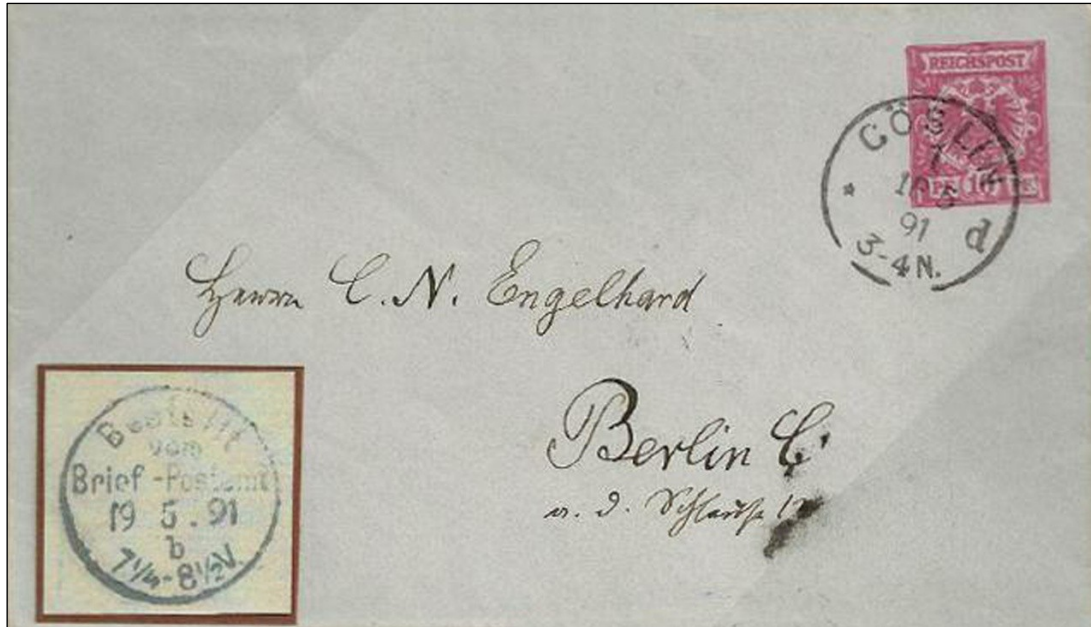 REICHSPOST
10
CÖSLIN
91
d
3-4N.
Herrn C. N. Engelhard
Berlin C
a. d. Schleuse
Bestellt
vom
Brief-Postamt
19 5. 91
b
7½-8½V.